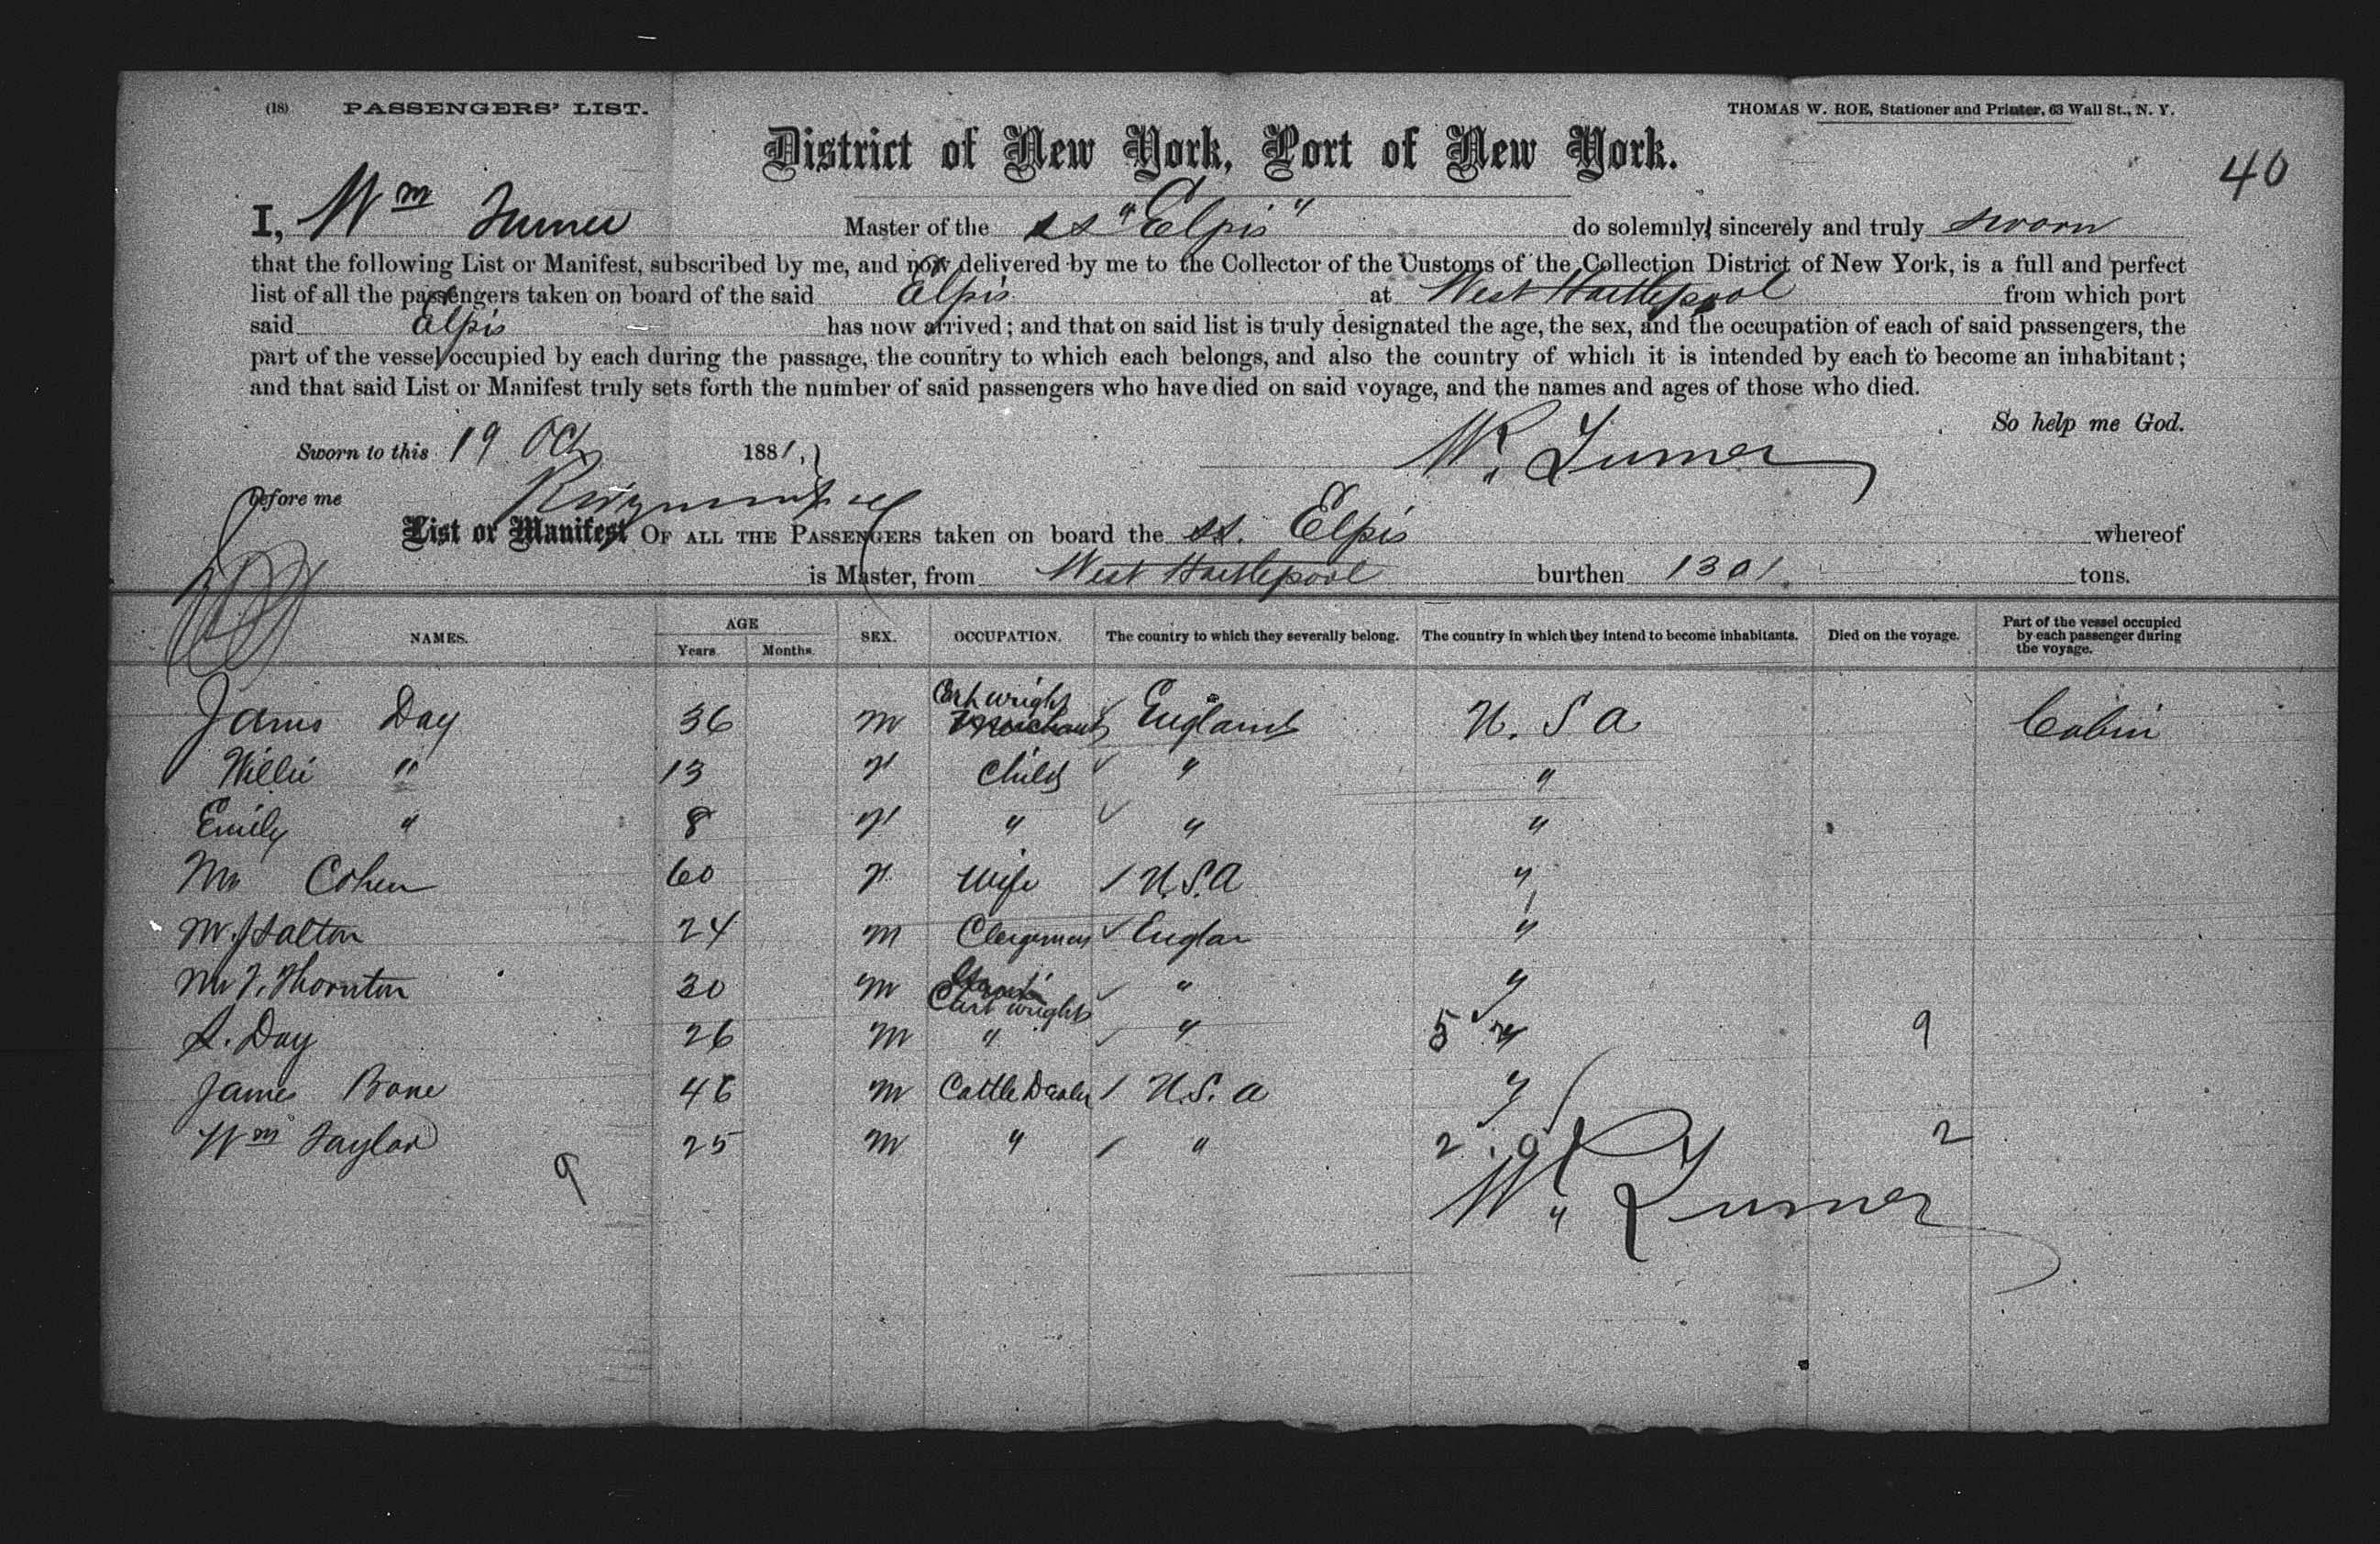 (18) PASSENGERS' LIST. THOMAS W. ROE, Stationer and Printer, 63 Wall St., N. Y.
District of New York, Port of New York. 40
I, Wm Turner Master of the ss "Elpis" do solemnly, sincerely and truly sworn
that the following List or Manifest, subscribed by me, and now delivered by me to the Collector of the Customs of the Collection District of New York, is a full and perfect
list of all the passengers taken on board of the said Elpis at West Hartlepool from which port
said Elpis has now arrived; and that on said list is truly designated the age, the sex, and the occupation of each of said passengers, the
part of the vessel occupied by each during the passage, the country to which each belongs, and also the country of which it is intended by each to become an inhabitant;
and that said List or Manifest truly sets forth the number of said passengers who have died on said voyage, and the names and ages of those who died.
So help me God.
Sworn to this 19 Oct 1881, W. Turner
before me
List or Manifest OF ALL THE PASSENGERS taken on board the ss. Elpis whereof
is Master, from West Hartlepool burthen 1301 tons.
NAMES. AGE Years. Months. SEX. OCCUPATION. The country to which they severally belong. The country in which they intend to become inhabitants. Died on the voyage. Part of the vessel occupied by each passenger during the voyage.
James Day 36 M Cartwright England U. S A Cabin
Willie " 13 Child " "
Emily " 8 " " "
Cohen 60 Wife U.S.A "
24 M Clergeman Englan "
Thornton 30 M Cartwright " "
S. Day 26 M " " 5 " 9
James Bone 46 M Cattle Dealer U.S.A "
Wm Taylor 25 M " " 2 9 2
9
W. Turner